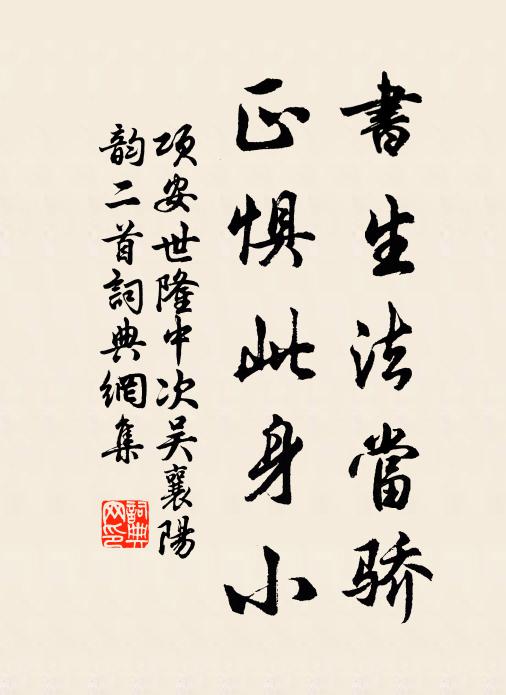 書生法當骄
正惧此身小
项安世隆中次吴襄陽
韵二首詞典網集
詞典网印